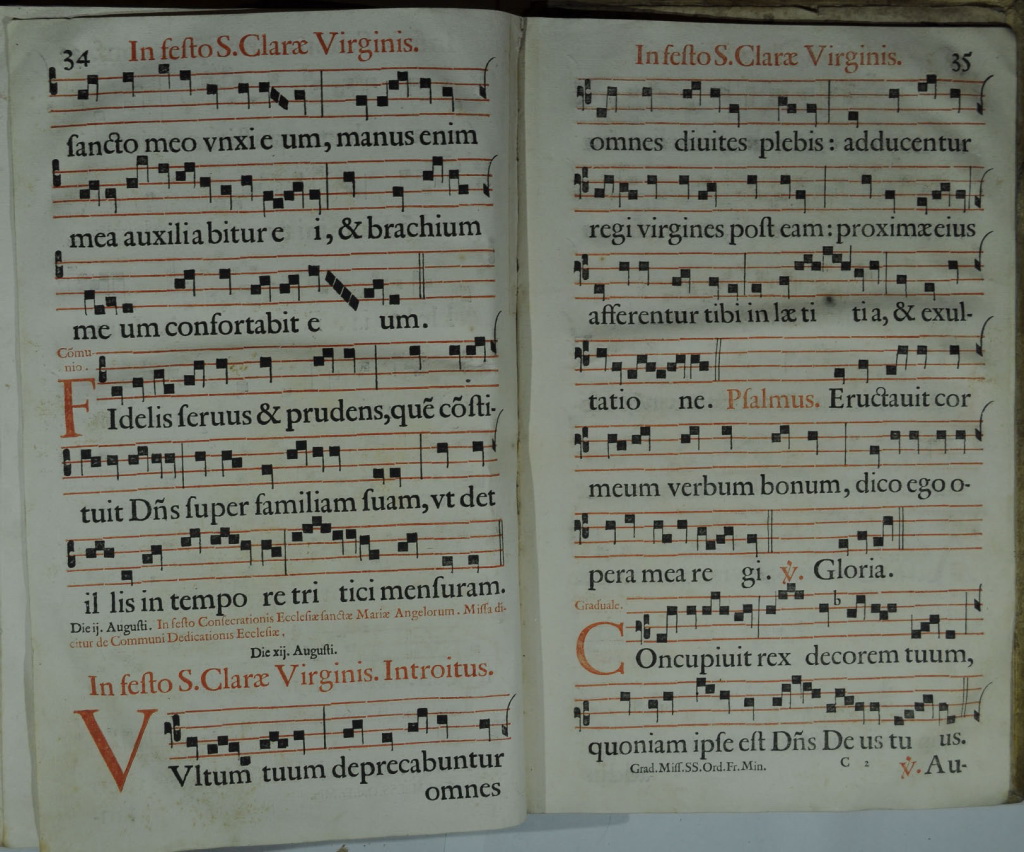 34 In feſto S. Claræ Virginis.
ſancto meo vnxi e um, manus enim
mea auxiliabitur e i, & brachium
me um confortabit e um.
Cõmu-
nio.
FIdelis ſeruus & prudens, quẽ cõſti-
tuit Dñs ſuper familiam ſuam, vt det
il lis in tempo re tri tici menſuram.
Die ij. Auguſti. In feſto Conſecrationis Eccleſiæ ſanctæ Mariæ Angelorum. Miſſa di-
citur de Communi Dedicationis Eccleſiæ.
Die xij. Auguſti.
In feſto S. Claræ Virginis. Introitus.
VVltum tuum deprecabuntur
omnes
In feſto S. Claræ Virginis. 35
omnes diuites plebis: adducentur
regi virgines poſt eam: proximæ eius
afferentur tibi in læ ti ti a, & exul-
tatio ne. Pſalmus. Eructauit cor
meum verbum bonum, dico ego o-
pera mea re gi. ℣. Gloria.
Graduale.
COncupiuit rex decorem tuum,
quoniam ipſe eſt Dñs De us tu us.
Grad. Miſſ. SS. Ord. Fr. Min. C 2 ℣. Au-